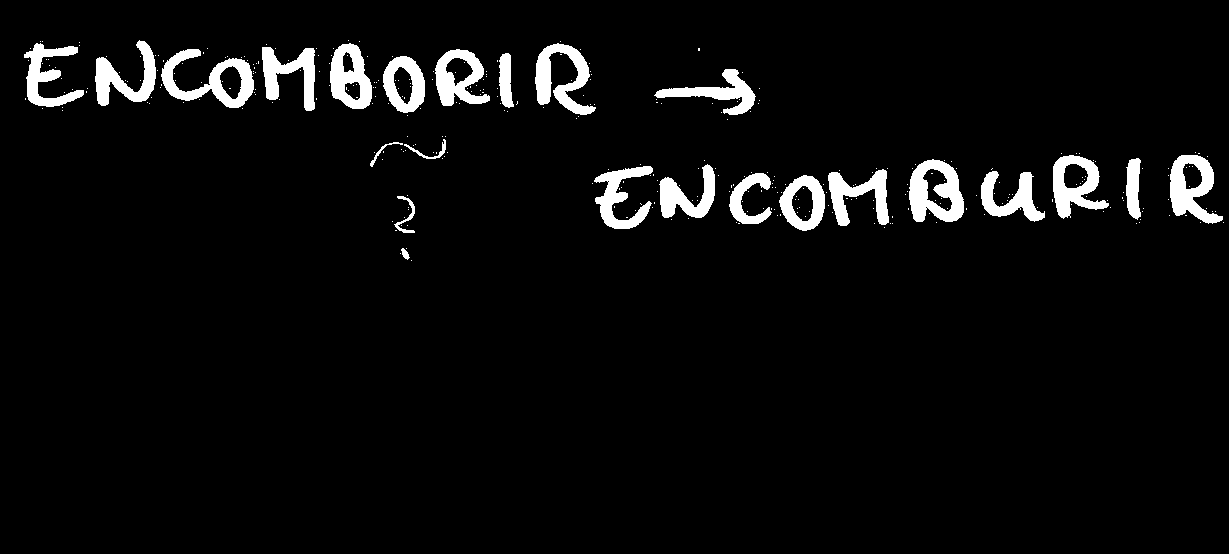 ENCOMBORIR →
~
?
ENCOMBURIR